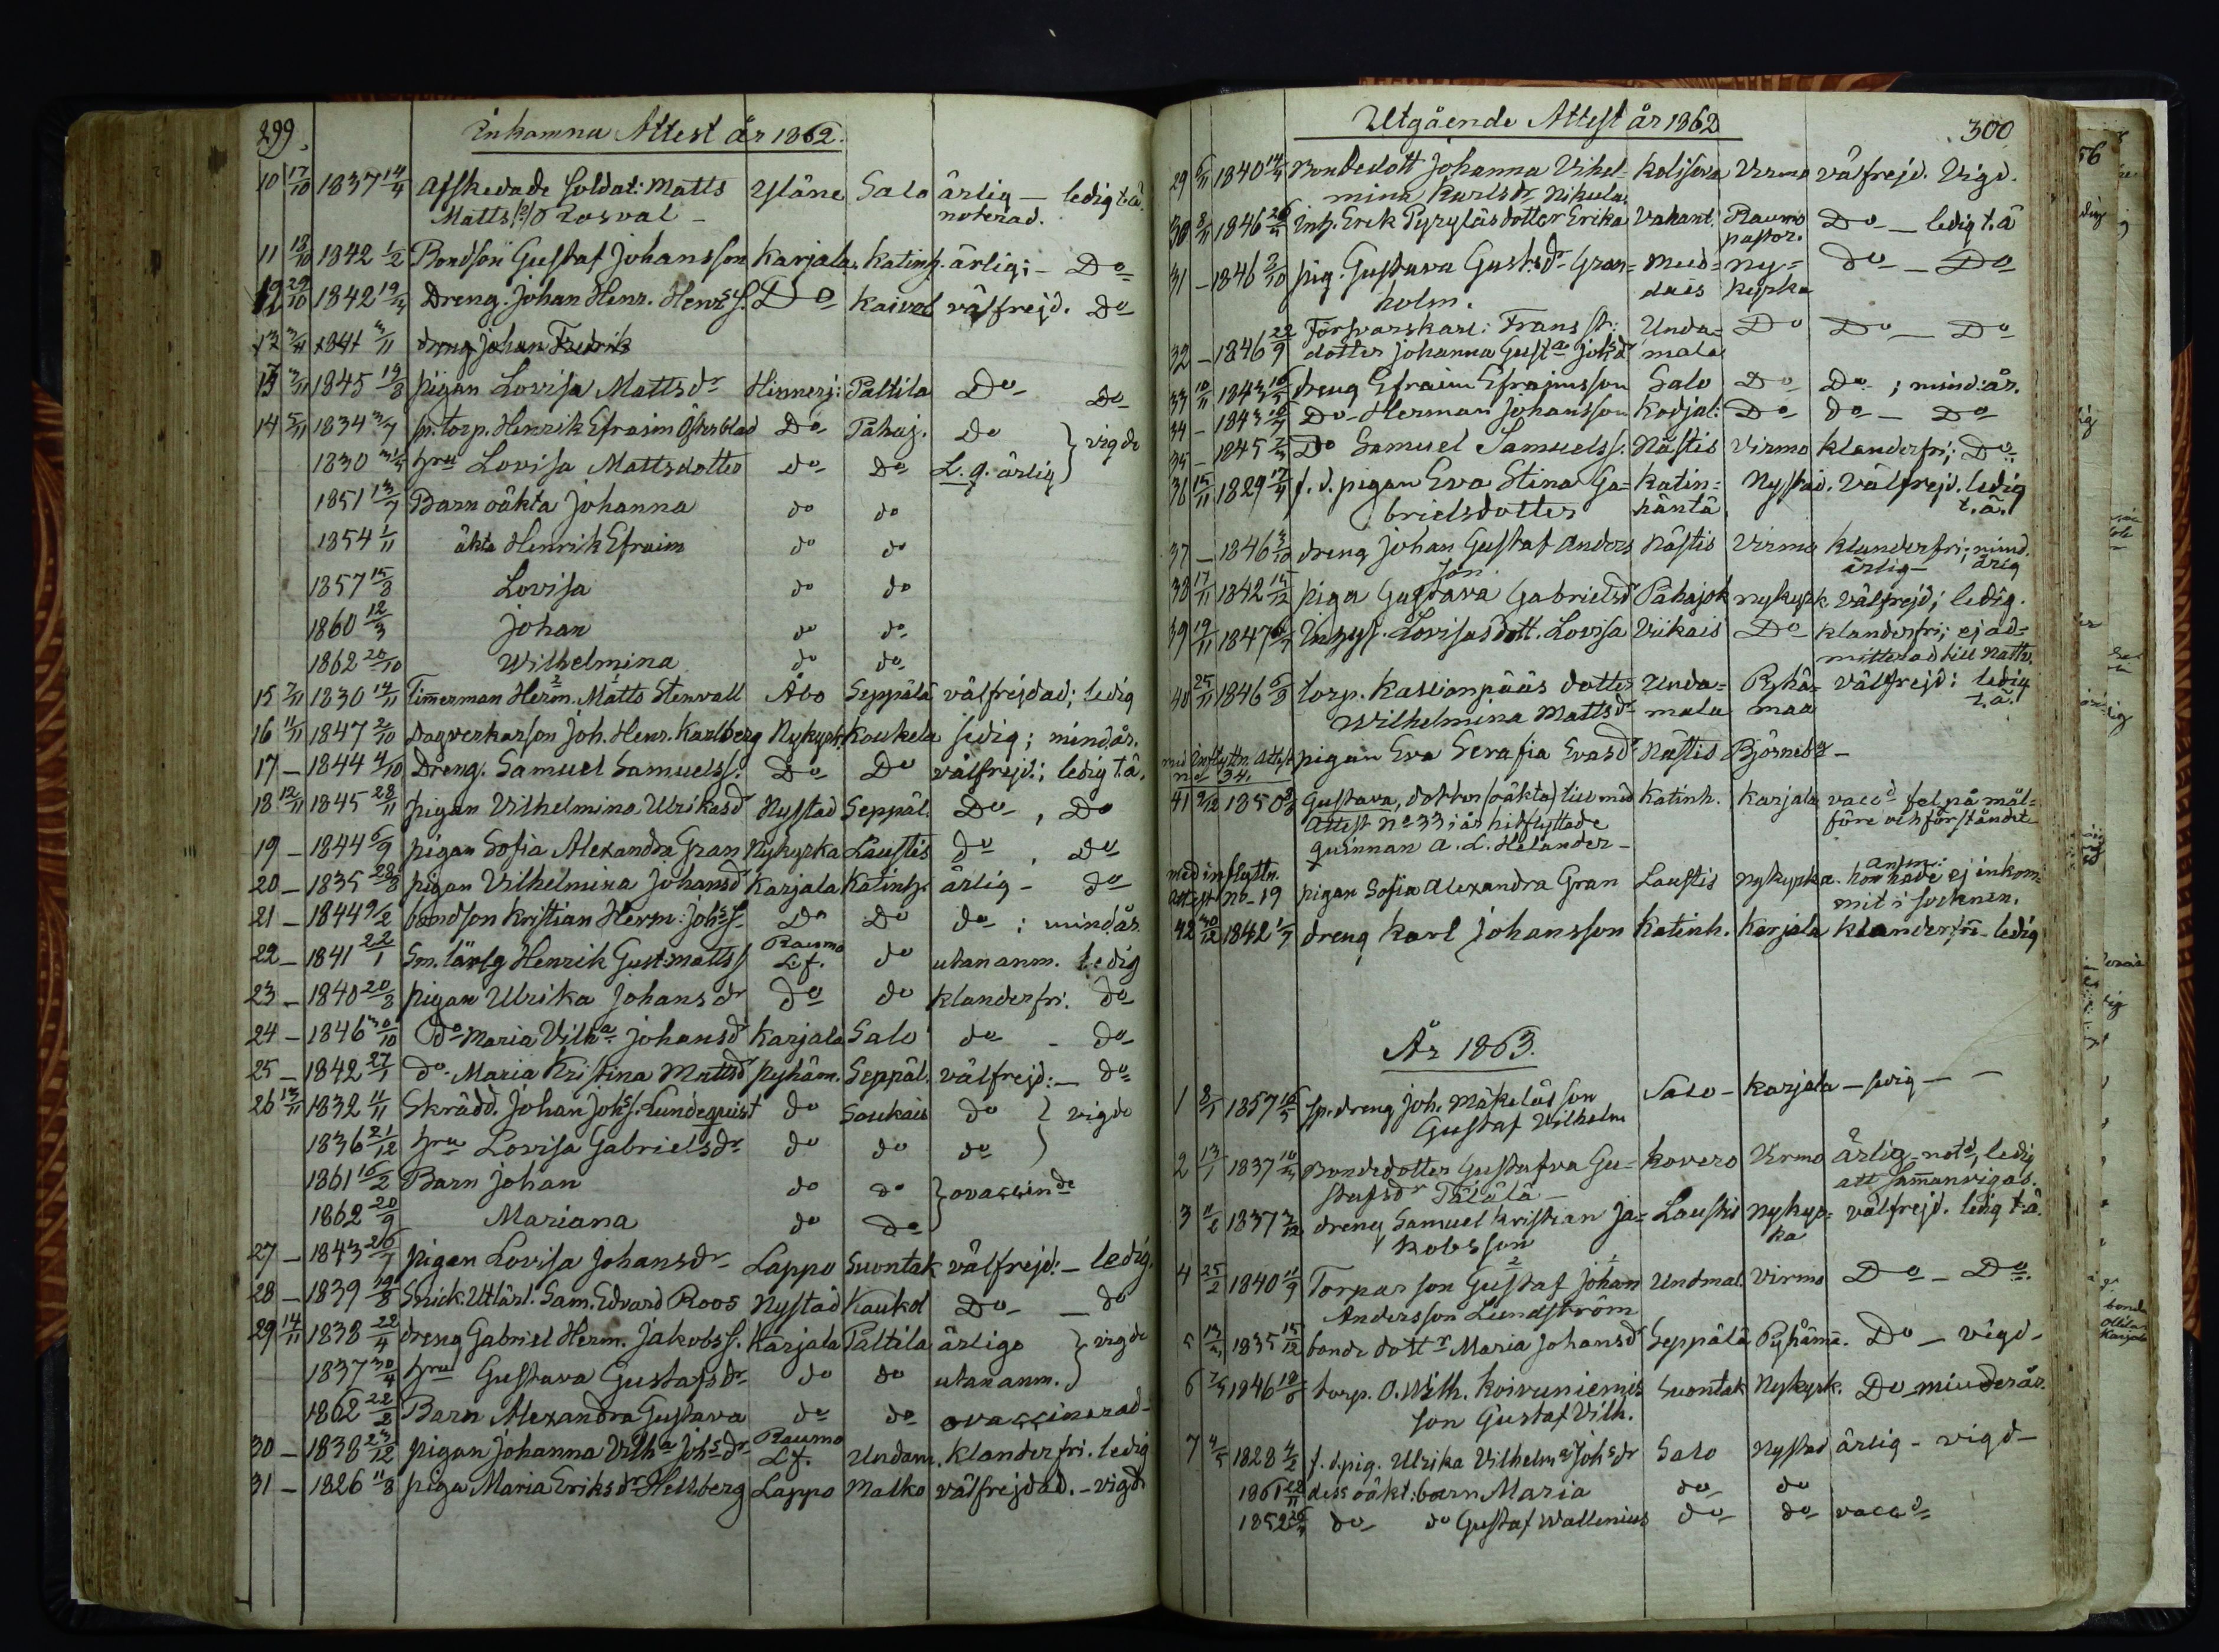 299.
Inkomna Attest år 1862.
10 17/10 1837 14/4 Afskedade Soldat: Matts Yläne Salo ärlig — ledig t.ä.
Matts: Rosval - noterad.
11 18/10 1842 1/2 Bondson Gustaf Johansson Karjala Katinh. ärlig; - Do
12 29/10 1842 19/4 Dreng. Johan Henr. Henrss. Do Kaivol välfrejd. Do
12 3/11 1841 3/11 dreng Johan Fredrik
13 3/11 1845 19/8 pigan Lovisa Mattsdr Hinnerj: Paltila Do Do
14 5/11 1834 3/7 sp. torp. Henrik Efraim Österblad Do Pahaj. Do } vigde
1830 31/5 hru Lovisa Mattsdotter do Do L. g. ärlig
1851 13/7 Barn oäkta Johanna do do
1854 1/11 äkta Henrik Efraim do do
1857 15/8 Lovisa do do
1860 12/3 Johan do do
1862 20/10 Wilhelmina do do
15 7/11 1830 14/11 Timmerman Herm. Matts Stenvall Åbo Seppälä välfrejdad; ledig
16 11/11 1847 2/10 Dagverkarson Joh. Henr. Karlberg Nykyrk. Koukela sedig; mind.år.
17 — 1844 4/10 Dreng. Samuel Samuelss. Do Do välfrejd.; ledig t.ä.
18 12/11 1845 28/11 pigan Vilhelmina Ulrikasd Nystad Seppäl. Do , Do
19 — 1844 6/9 pigan Sofia Alexandra Gran Nykyrka Laustis do , do
20 — 1835 28/8 pigan Vilhelmina Johansd Karjala Katinh. ärlig - do
21 — 1844 9/2 bondson Kristian Herm: Johss. Do Do do ; mind.år.
22 — 1841 22/1 Sm. lärlg Henrik Gust. Mattss Raumo Lf. do utan anm. ledig
23 — 1840 20/3 pigan Ulrika Johansdr do do klanderfri. do
24 — 1846 30/10 do Maria Vilha Johansd Karjala Salo do - do
25 — 1842 27/1 do Maria Kristina Mattsd Pyhäm. Seppäl. välfrejd: - do
26 13/11 1832 11/11 Skrädd. Johan Johss. Lundequist do Soukais do } vigde
1836 21/12 hru Lovisa Gabrielsdr do do do
1861 16/2 Barn Johan do do } ovaccinde
1862 20/9 Mariana do do
27 — 1843 26/7 pigan Lovisa Johansdr Lappo Suontak välfrejd: - ledig.
28 — 1839 19/8 Snick. Utlärl. Sam. Edvard Roos Nystad Kaukol Do — do
29 14/11 1838 22/4 dreng Gabriel Herm. Jakobss. Karjala Paltila ärliga } vigde
1837 30/4 hru Gustava Gustafsdr do do utan anm.
1862 22/2 Barn Alexandra Gustava do do ovaccinerad
30 — 1838 23/12 pigan Johanna Vilha Johsdr Raumo Lf. Undam. klanderfri. ledig
31 — 1826 11/8 piga Maria Eriksdr Hellberg Lappo Malko välfrejdad. - vigd
Utgående Attest år 1862
300
29 6/11 1840 14/4 Bondedott Johanna Vihel- Kolisova Virmo välfrejd. Vigd.
mina Karlsdr Nikula.
30 8/11 1846 Inh. Erik Pyryläs dotter Erika Vahant. Raumo Do — ledig t.ä
pastor.
31 — 1846 2/10 pig. Gustava Gustsdr Gran- Mud- Ny- do — Do
holm. dais kyrka
32 — 1846 22/9 Försvarskarl: Frans st: Unda- Do Do — Do
dotter Johanna Gusta Johsd mala
33 10/11 1843 dreng Efraim Efraimsson Salo Do Do ; mind: år.
34 — 1843 Do Herman Johansson Kodjal: Do do — Do
35 — 1845 Do Samuel Samuelss. Nästis Virmo klanderfri; Do
36 15/11 1829 17/4 f. d. pigan Eva Stina Ga- Katin- Nystad. Välfrejd. ledig
brielsdotter häntä t. ä.
37 — 1846 3/10 dreng Johan Gustaf Anders Nästis Virmo klanderfri; mind.
son. ärlig — årig
38 17/11 1842 15/12 piga Gustava Gabrielsd Pahajok Nykyrk. Välfrejd; ledig.
39 19/11 1847 Inhys. Lovisas dott. Lovisa Viikais Do klanderfri; ej ad-
mitterad till Nattv.
40 25/11 1846 6/8 torp. Kallionpääs dotter Unda- Pyhä- välfrejd: ledig
Wilhelmina Mattsd mala maa t. ä.
med inflyttn. attest pigan Eva Serafia Evasd Nästis Björneb —
no 34.
41 9/12 1850 Gustava, dotter (oäkta) till med Katinh. Karjala vaccd fel på mål-
Attest No 33 i år hitflyttade före och förståndet
quinnan A. L. Helander —
med inflyttn. anm:
attest no 19 pigan Sofia Alexandra Gran Laustis Nykyrka. hon hade ej inkom-
mit i socknen.
42 30/12 1842 1/7 dreng Karl Johansson Katinh. Karjala klanderfri - ledig
År 1863.
1 8/1 1857 sp. dreng Joh. Mäkeläs son Salo — Karjala — sedig —
Gustaf Wilhelm
2 13/1 1837 Bondedotter Gustafva Gu- Kovero Virmo ärlig - notd, ledig
stafsdr Tälälä — att sammanvigas.
3 11/2 1837 dreng Samuel Kristian Ja- Laustis Nykyr- välfrejd. ledig t.ä.
kobsson ka
4 25/2 1840 11/9 Torpar son Gustaf Johan Undmal. Virmo Do — Do.
Andersson Lundström
5 1835 15/12 bonde dottr Maria Johansd Seppälä Pyhämä. Do — vigd —
6 1846 torp. O. Wilh. Koivuniemis Suontak Nykyrk. Do minderår.
son Gustaf Vilh.
7 1828 f. d. pig. Ulrika Vilhelma Johsdr Salo Nystad ärlig - vigd —
1861 dess oäkt: barn Maria do do
1852 do do Gustaf Wallenius do do vaccd